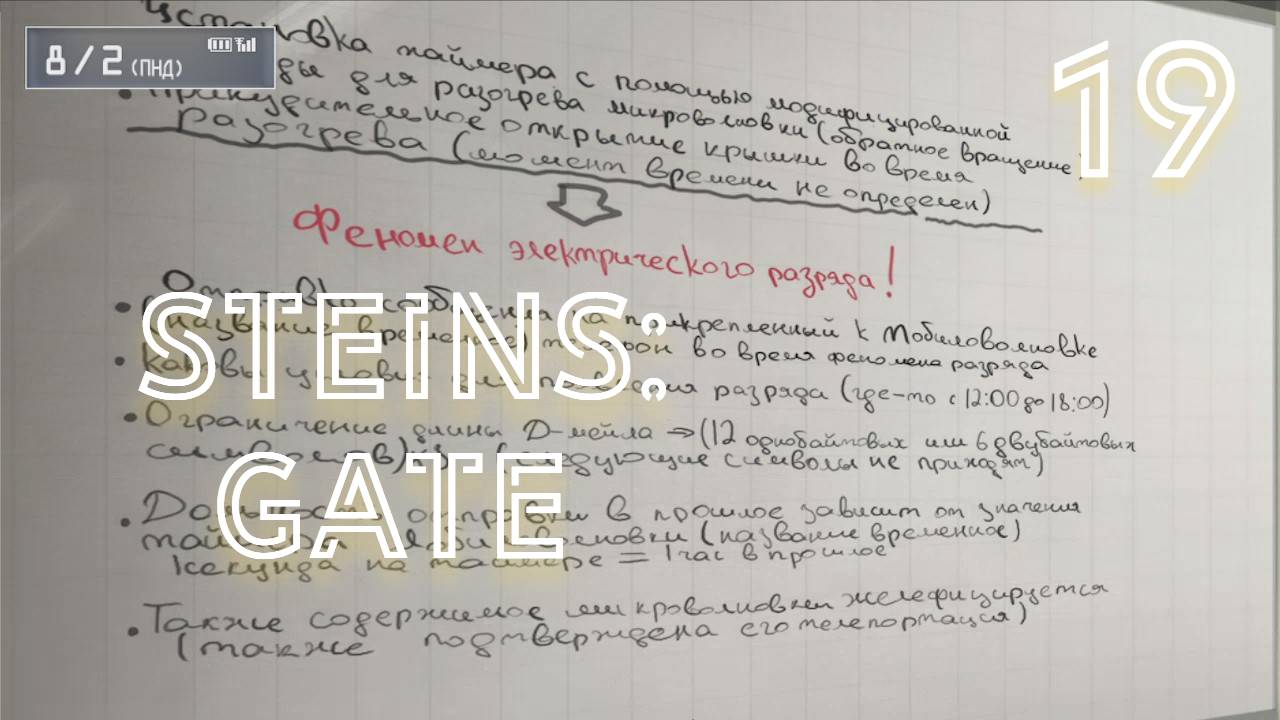 8/2 (ПНД)
19
Установка таймера с помощью модифицированной
для разогрева микроволновки (обратное вращение)
• Принудительное открытие крышки во время
разогрева (момент времени не определен)
Феномен электрического разряда!
• на прикрепленный к Мобиловолновке
(название временное) телефон во время феномена разряда
• Каковы условия для разряда (где-то с 12:00 до 18:00)
• Ограничение длины D-мейла → (12 однобайтовых или 6 двубайтовых
символов) (следующие символы не приходят)
STEINS;
GATE
• отправки в прошлое зависит от значения
(название временное)
1 секунда на таймере = 1 час в прошлое
• Также содержимое микроволновки желефицируется
(также подтверждена его телепортация)